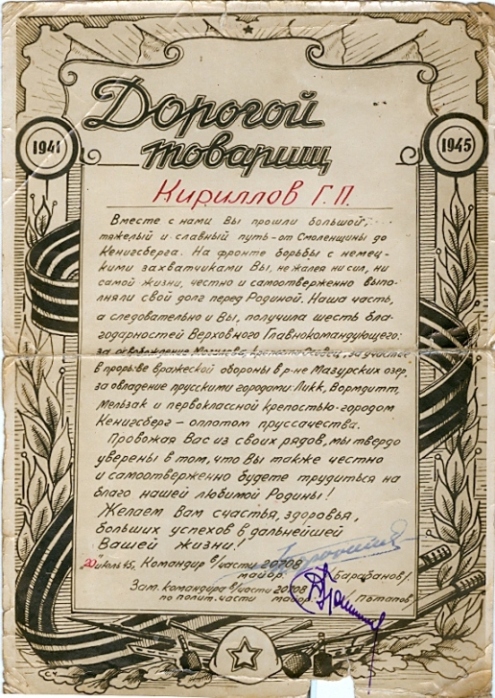 1941
1945
Дорогой
товарищ
Кириллов Г.П.
Вместе с нами Вы прошли большой,
тяжелый и славный путь - от Смоленщины до
Кенигсберга. На фронте борьбы с немец-
кими захватчиками Вы, не жалея ни сил, ни
самой жизни, честно и самоотверженно выпо-
лняли свой долг перед Родиной. Наша часть,
а следовательно и Вы, получила шесть бла-
годарностей Верховного Главнокомандующего:
за освобождение крепости Осовец, за участие
в прорыве вражеской обороны в р-не Мазурских озер,
за овладение прусскими городами: Ликк, Вормдитт,
Мельзак и первоклассной крепостью-городом
Кенигсберг - оплотом пруссачества.
Провожая Вас из своих рядов, мы твердо
уверены в том, что Вы также честно
и самоотверженно будете трудиться на
благо нашей любимой Родины!
Желаем Вам счастья, здоровья,
больших успехов в дальнейшей
Вашей жизни!
20 июль 45. Командир в/части 20708
майор /Барабанов/.
Зам. командира в/части 20708
по полит. части майор Потапов